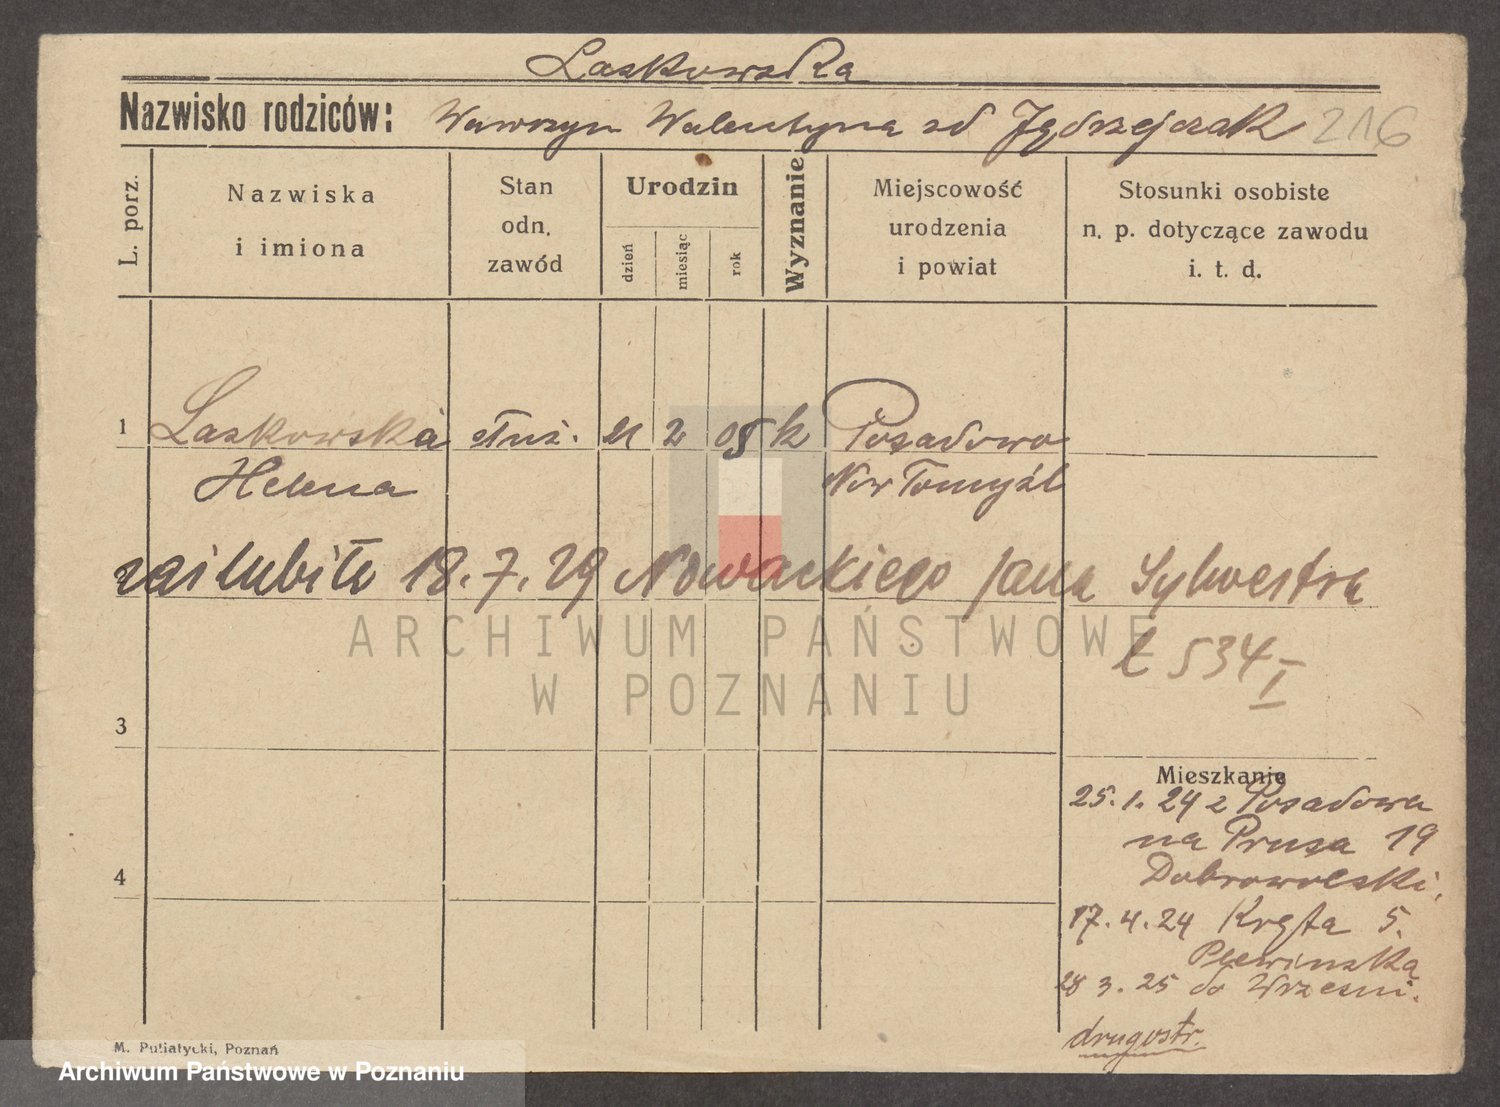 Laskowska
Nazwisko rodziców: Wawrzyn Walentyna zd Jędrzejczak 216
L. porz.
Nazwiska
i imiona
Stan
odn.
zawód
Urodzin
dzień
miesiąc
rok
Wyznanie
Miejscowość
urodzenia
i powiat
Stosunki osobiste
n. p. dotyczące zawodu
i. t. d.
1 Laskowska służ. 2 05 k Posadowo
Helena Now Tomyśl
zaślubiła 18.7.29 Nowackiego Jana Sylwestra
ARCHIWUM PAŃSTWOWE
W POZNANIU
534 I
3
Mieszkanie
25.1.24 z Posadowa
na Prusa 19
Dobrowolski.
4
17.4.24 Kręta 5.
Plewinska
28 3.25 do Wrześni.
drugostr.
M. Putiatycki, Poznań
Archiwum Państwowe w Poznaniu